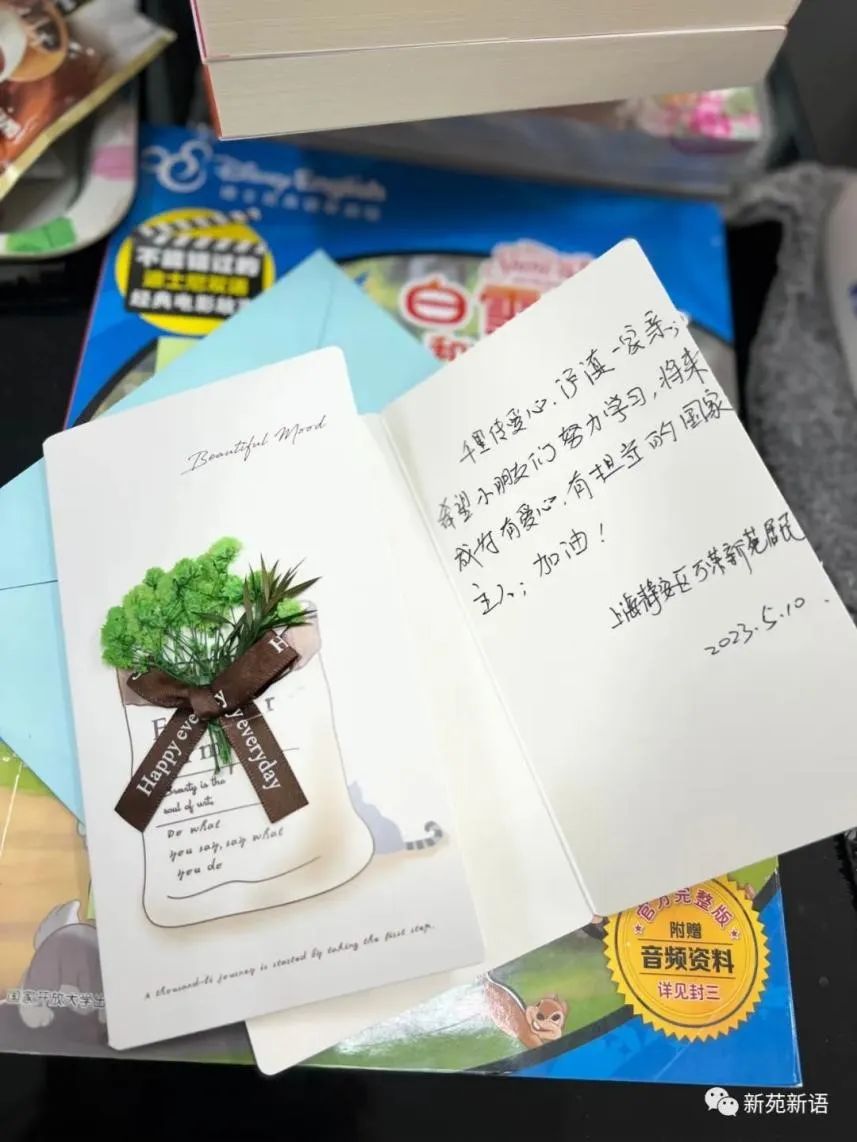 Disney English
不能错过的
迪士尼双语
经典电影故
白雪
和
Beautiful Mood
千里传爱心、沪滇一家亲;
希望小朋友们努力学习,将来
成为有爱心、有担当的国家
主人;加油!
上海静安区万荣新苑居民
2023.5.10.
Happy every
y everyday
Brevity is the
soul of wit.
Do what
you say, say what
you do
A thousand-li journey is started by taking the first step.
国家开放大学出
官方完整版
附赠
音频资料
详见封三
新苑新语